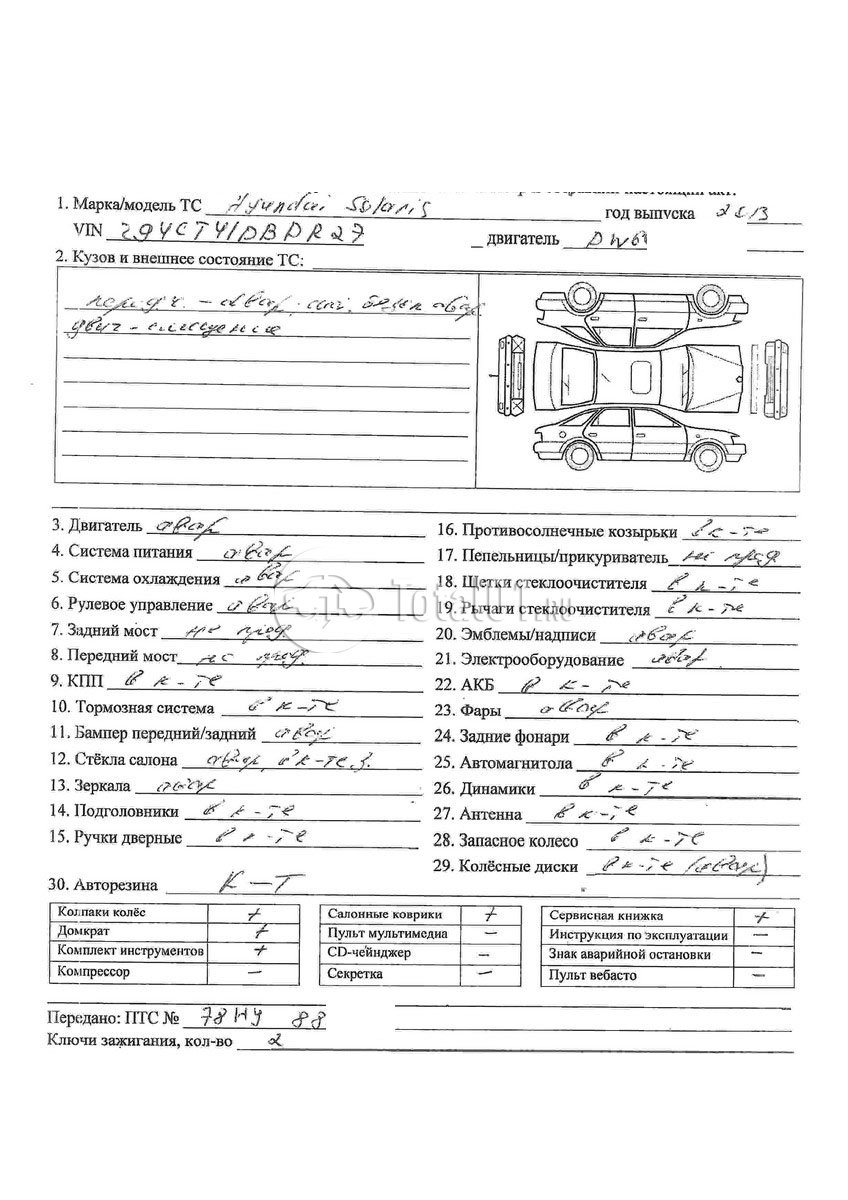 настоящий акт.
1. Марка/модель ТС Hyundai Solaris год выпуска 2013
VIN Z94CT41DBDR27 двигатель
2. Кузов и внешнее состояние ТС:
авар.
двиг - смещение
3. Двигатель авар
4. Система питания авар
5. Система охлаждения авар
6. Рулевое управление авар
7. Задний мост не пред
8. Передний мост не пред
9. КПП в к-те
10. Тормозная система в к-те
11. Бампер передний/задний авар
12. Стёкла салона авар, в к-те з.
13. Зеркала авар
14. Подголовники в к-те
15. Ручки дверные в к-те
16. Противосолнечные козырьки в к-те
17. Пепельницы/прикуриватель не пред
18. Щетки стеклоочистителя в к-те
19. Рычаги стеклоочистителя в к-те
20. Эмблемы/надписи авар
21. Электрооборудование авар
22. АКБ в к-те
23. Фары авар
24. Задние фонари в к-те
25. Автомагнитола в к-те
26. Динамики в к-те
27. Антенна в к-те
28. Запасное колесо в к-те
29. Колёсные диски в к-те (авар)
30. Авторезина К-Т
Total01.RU
Колпаки колёс +
Домкрат +
Комплект инструментов +
Компрессор -
Салонные коврики +
Пульт мультимедиа -
CD-чейнджер -
Секретка -
Сервисная книжка +
Инструкция по эксплуатации -
Знак аварийной остановки -
Пульт вебасто -
Передано: ПТС № 78НУ 88
Ключи зажигания, кол-во 2